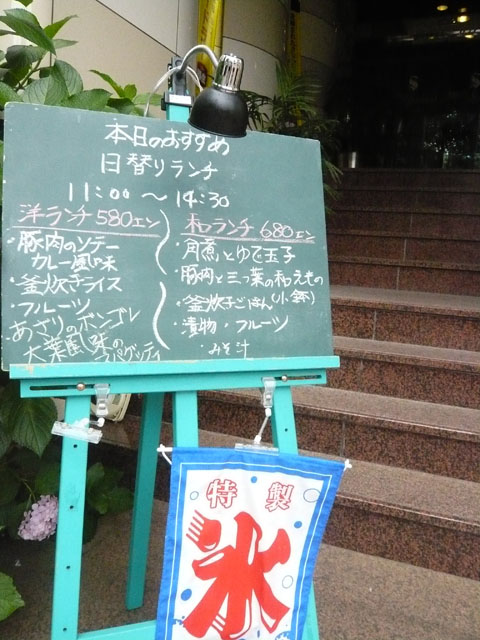 本日のおすすめ
日替りランチ
11:00〜14:30
洋ランチ580エン
・豚肉のソテー
カレー風味
・釜炊きライス
・フルーツ
あさりのボンゴレ
大葉風味の
スパゲッティ
和ランチ 680エン
・角煮とゆで玉子
・豚肉と三つ葉の和えもの
・釜炊きごはん(小鉢)
・漬物・フルーツ
・みそ汁
特製
氷